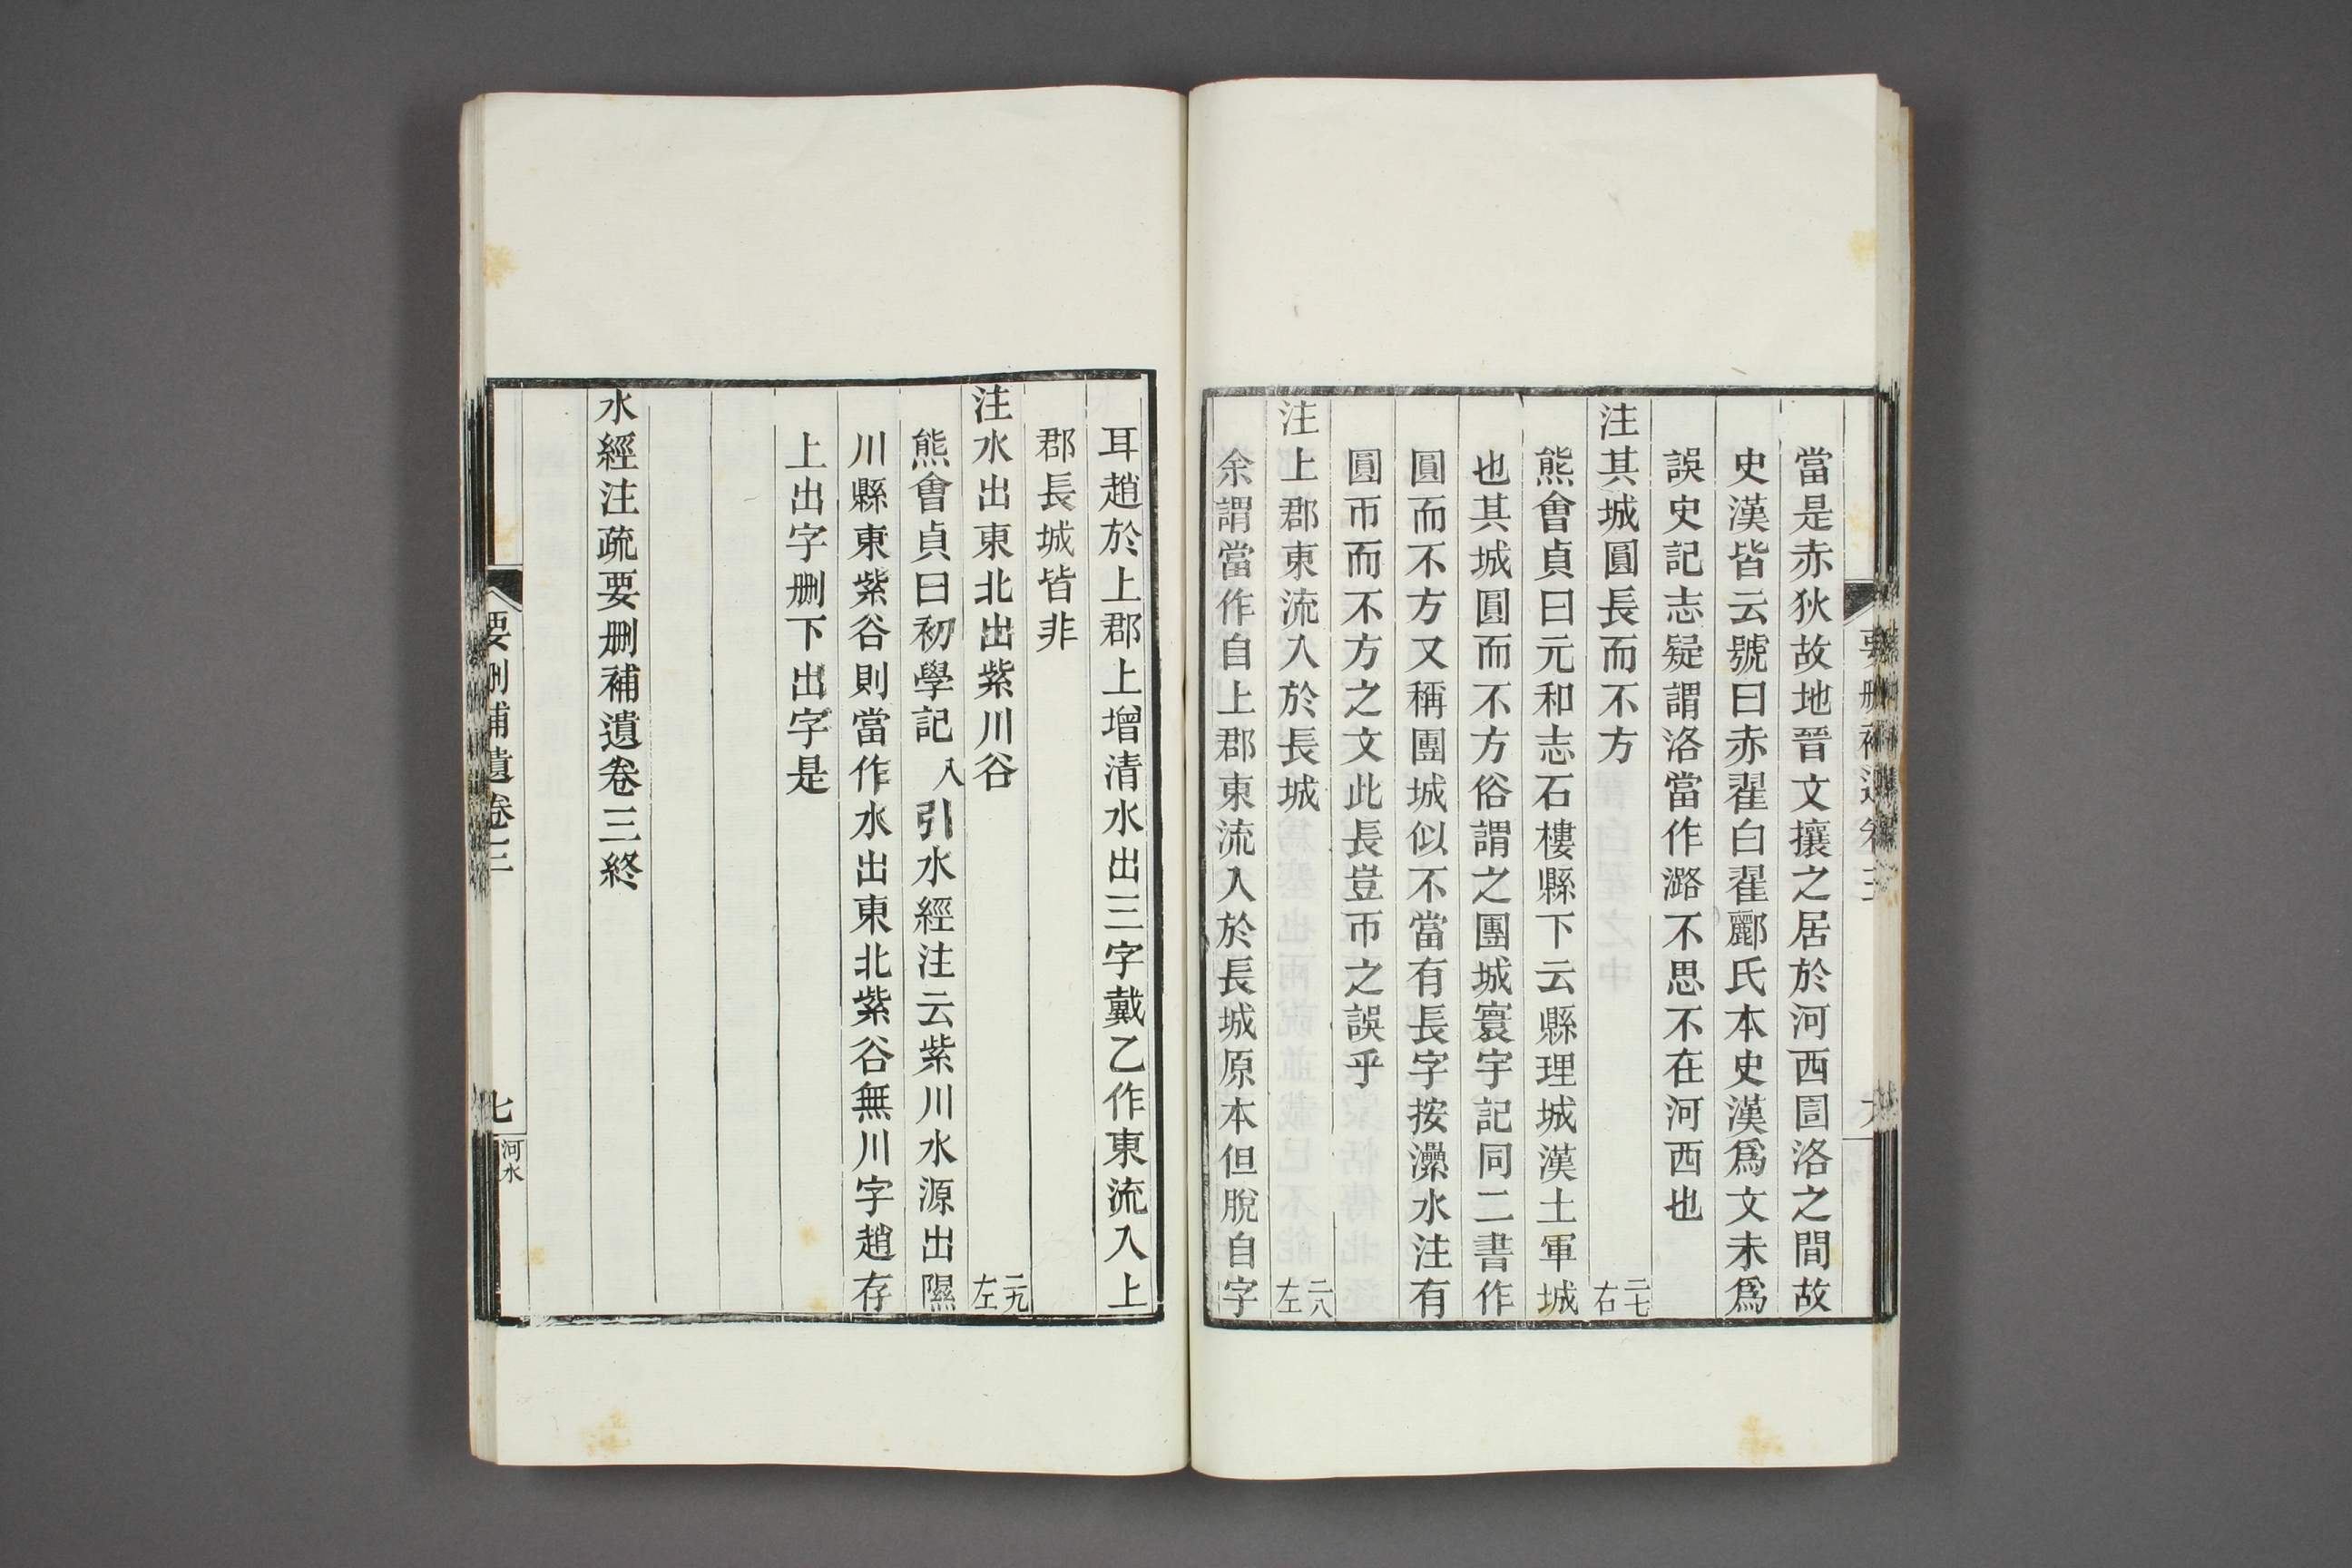 當是赤狄故地晉文攘之居於河西圁洛之間故
史漢皆云號曰赤翟白翟酈氏本史漢爲文未爲
誤史記志疑謂洛當作潞不思不在河西也
注其城圓長而不方 二七右
熊會貞曰元和志石樓縣下云縣理城漢土軍城
也其城圓而不方俗謂之團城寰宇記同二書作
圓而不方又稱團城似不當有長字按灅水注有
圓帀而不方之文此長豈帀之誤乎
注上郡東流入於長城 二八左
余謂當作自上郡東流入於長城原本但脫自字
耳趙於上郡上增清水出三字戴乙作東流入上
郡長城皆非
注水出東北出紫川谷 二九左
熊會貞曰初學記 八 引水經注云紫川水源出隰
川縣東紫谷則當作水出東北紫谷無川字趙存
上出字刪下出字是
水經注疏要刪補遺卷三終
要刪補遺卷三
七
河水